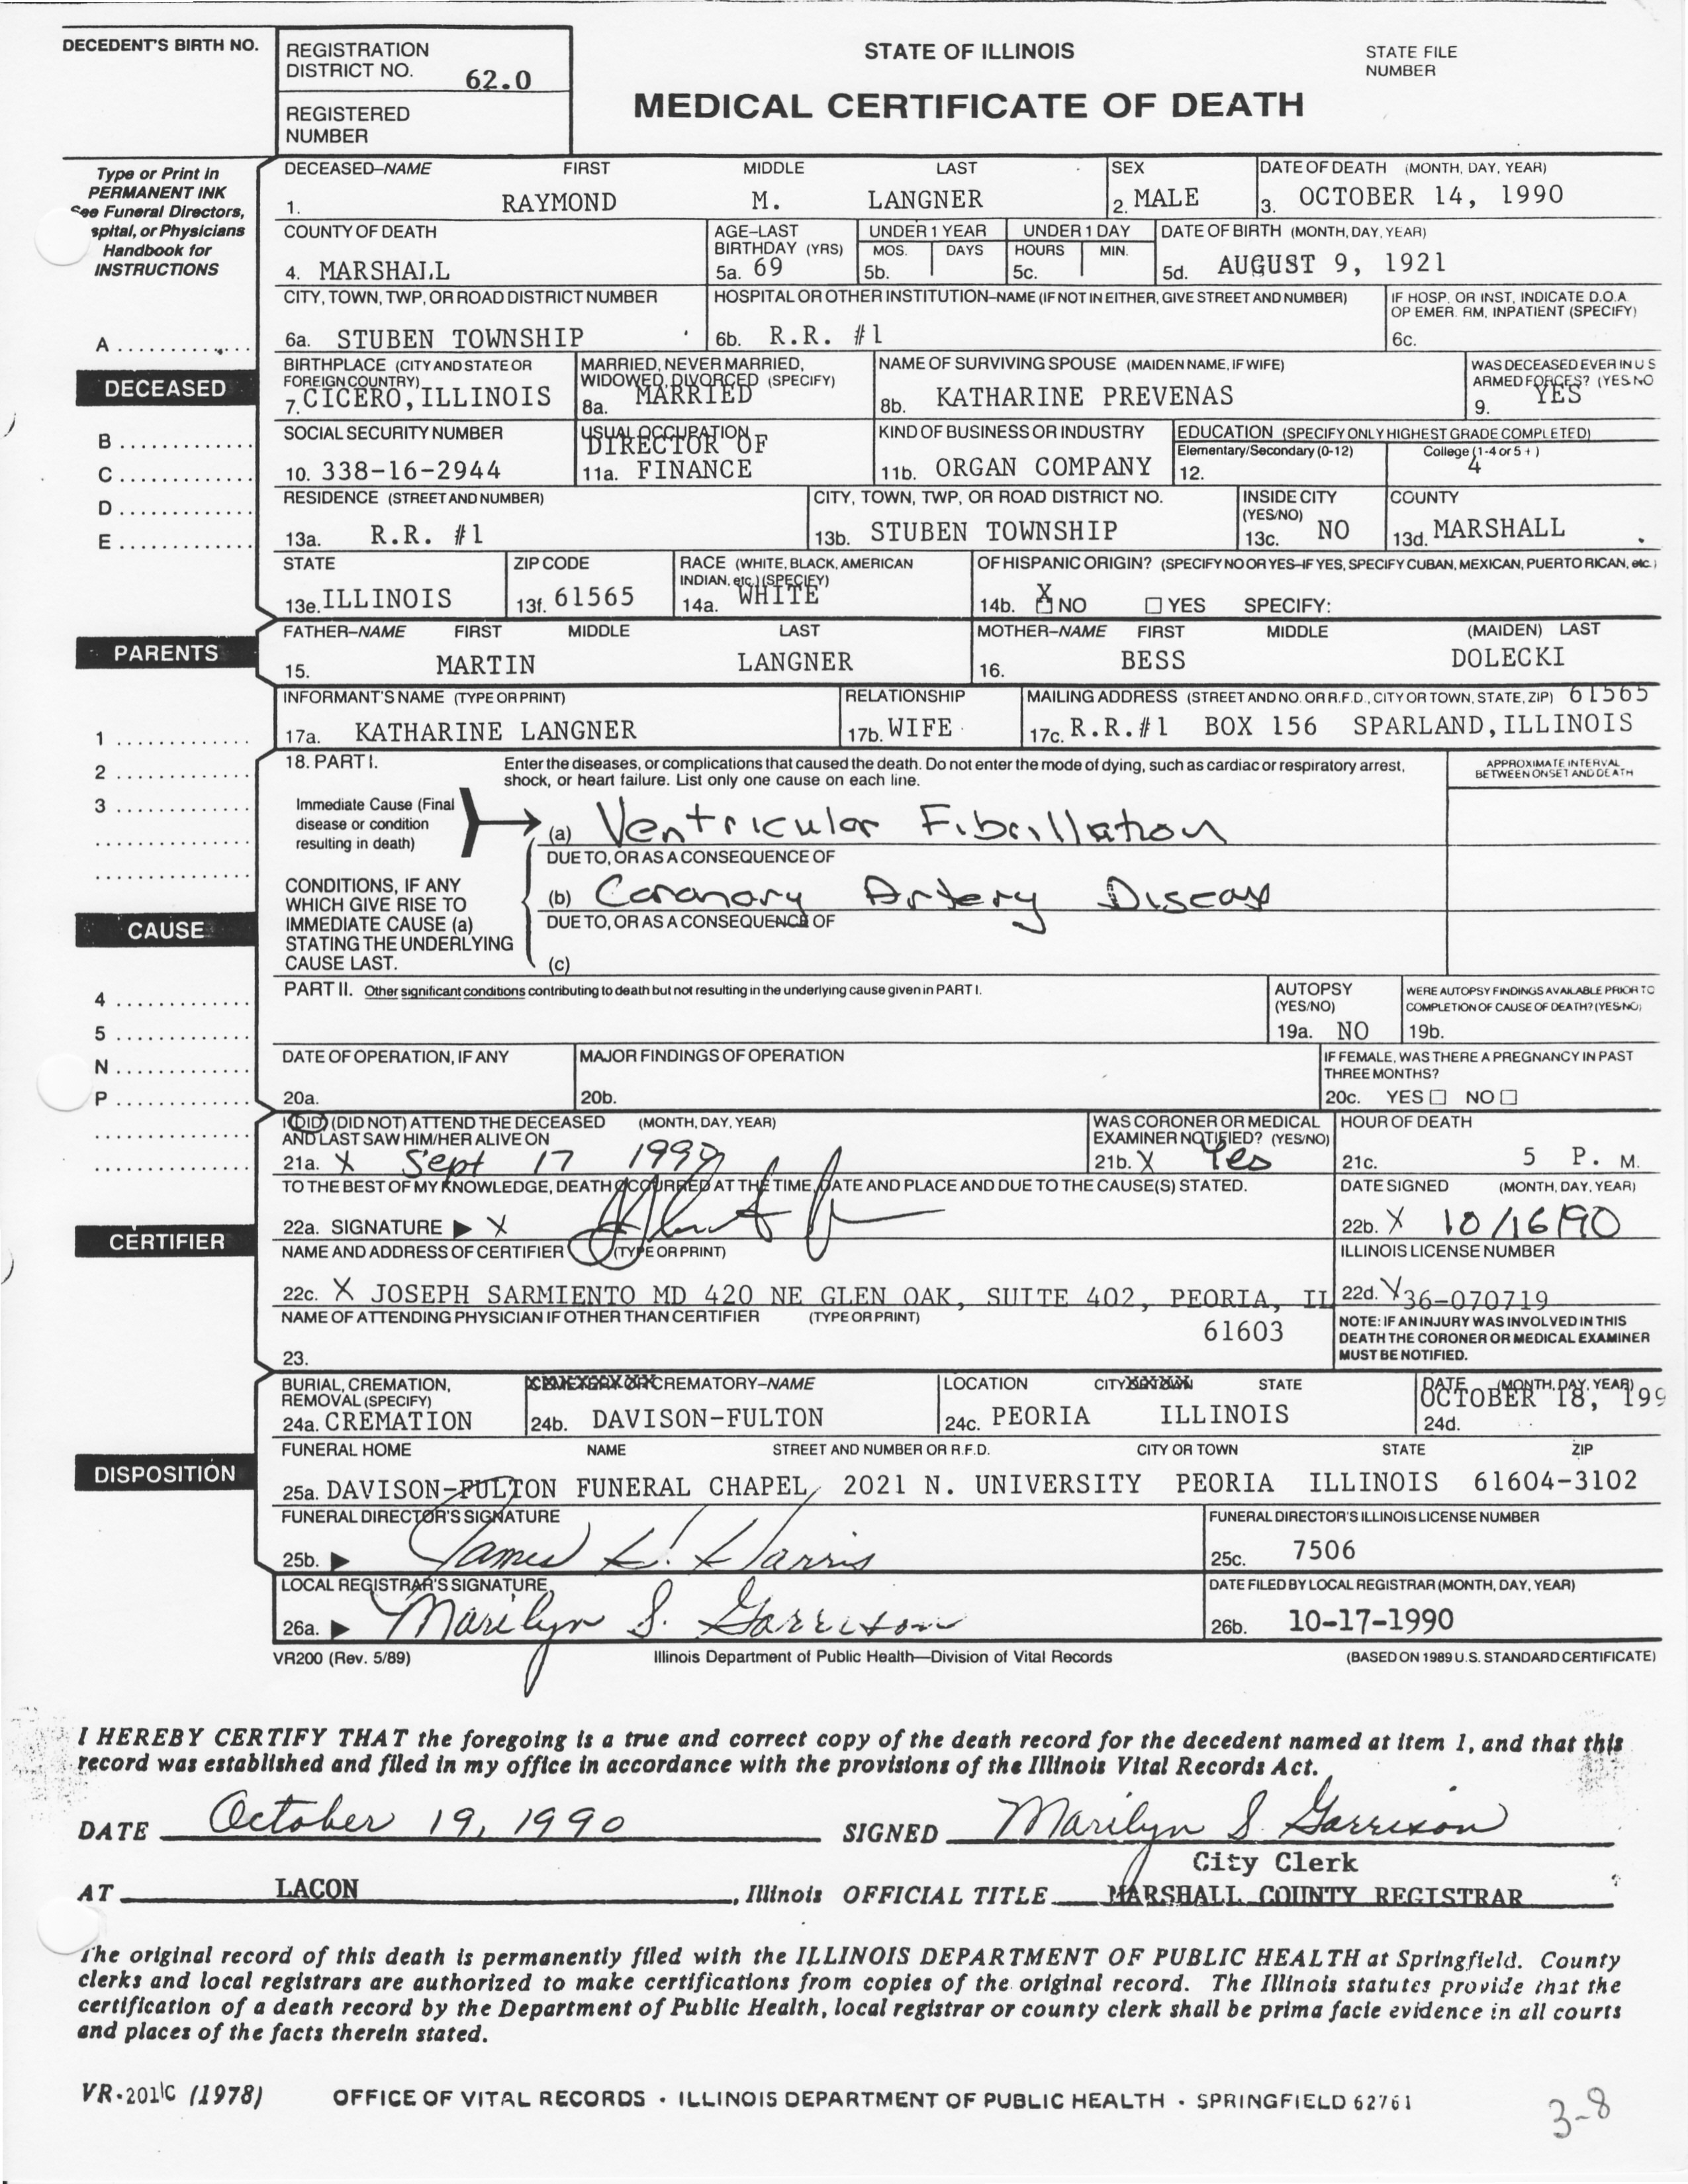 DECEDENT'S BIRTH NO.
REGISTRATION
DISTRICT NO. 62.0
REGISTERED
NUMBER
STATE OF ILLINOIS
STATE FILE
NUMBER
MEDICAL CERTIFICATE OF DEATH
Type or Print in
PERMANENT INK
See Funeral Directors,
spital, or Physicians
Handbook for
INSTRUCTIONS
DECEASED–NAME FIRST MIDDLE LAST SEX DATE OF DEATH (MONTH, DAY, YEAR)
1. RAYMOND M. LANGNER 2. MALE 3. OCTOBER 14, 1990
COUNTY OF DEATH AGE–LAST BIRTHDAY (YRS) UNDER 1 YEAR UNDER 1 DAY DATE OF BIRTH (MONTH, DAY, YEAR)
MOS. DAYS HOURS MIN.
4. MARSHALL 5a. 69 5b. 5c. 5d. AUGUST 9, 1921
CITY, TOWN, TWP, OR ROAD DISTRICT NUMBER HOSPITAL OR OTHER INSTITUTION–NAME (IF NOT IN EITHER, GIVE STREET AND NUMBER) IF HOSP. OR INST, INDICATE D.O.A. OP EMER. RM, INPATIENT (SPECIFY)
A
6a. STUBEN TOWNSHIP 6b. R.R. #1 6c.
DECEASED
BIRTHPLACE (CITY AND STATE OR FOREIGN COUNTRY) MARRIED, NEVER MARRIED, WIDOWED, DIVORCED (SPECIFY) NAME OF SURVIVING SPOUSE (MAIDEN NAME, IF WIFE) WAS DECEASED EVER IN U S ARMED FORCES? (YES NO
7. CICERO, ILLINOIS 8a. MARRIED 8b. KATHARINE PREVENAS 9. YES
B
SOCIAL SECURITY NUMBER USUAL OCCUPATION KIND OF BUSINESS OR INDUSTRY EDUCATION (SPECIFY ONLY HIGHEST GRADE COMPLETED)
Elementary/Secondary (0-12) College (1-4 or 5 + )
C
10. 338-16-2944 11a. DIRECTOR OF FINANCE 11b. ORGAN COMPANY 12. 4
D
RESIDENCE (STREET AND NUMBER) CITY, TOWN, TWP, OR ROAD DISTRICT NO. INSIDE CITY (YES/NO) COUNTY
E
13a. R.R. #1 13b. STUBEN TOWNSHIP 13c. NO 13d. MARSHALL
STATE ZIP CODE RACE (WHITE, BLACK, AMERICAN INDIAN, etc.) (SPECIFY) OF HISPANIC ORIGIN? (SPECIFY NO OR YES–IF YES, SPECIFY CUBAN, MEXICAN, PUERTO RICAN, etc.)
13e. ILLINOIS 13f. 61565 14a. WHITE 14b. X NO YES SPECIFY:
PARENTS
FATHER–NAME FIRST MIDDLE LAST MOTHER–NAME FIRST MIDDLE (MAIDEN) LAST
15. MARTIN LANGNER 16. BESS DOLECKI
INFORMANT'S NAME (TYPE OR PRINT) RELATIONSHIP MAILING ADDRESS (STREET AND NO. OR R.F.D., CITY OR TOWN, STATE, ZIP) 61565
1
17a. KATHARINE LANGNER 17b. WIFE 17c. R.R.#1 BOX 156 SPARLAND, ILLINOIS
2
3
18. PART I. Enter the diseases, or complications that caused the death. Do not enter the mode of dying, such as cardiac or respiratory arrest,
shock, or heart failure. List only one cause on each line.
APPROXIMATE INTERVAL
BETWEEN ONSET AND DEATH
Immediate Cause (Final
disease or condition
resulting in death)
(a) Ventricular Fibrillation
DUE TO, OR AS A CONSEQUENCE OF
CAUSE
CONDITIONS, IF ANY
WHICH GIVE RISE TO
IMMEDIATE CAUSE (a)
STATING THE UNDERLYING
CAUSE LAST.
(b) Coronary Artery Disease
DUE TO, OR AS A CONSEQUENCE OF
(c)
PART II. Other significant conditions contributing to death but not resulting in the underlying cause given in PART I.
4
5
AUTOPSY
(YES/NO)
19a. NO
WERE AUTOPSY FINDINGS AVAILABLE PRIOR TO
COMPLETION OF CAUSE OF DEATH? (YES/NO)
19b.
N
P
DATE OF OPERATION, IF ANY MAJOR FINDINGS OF OPERATION IF FEMALE, WAS THERE A PREGNANCY IN PAST THREE MONTHS?
20a. 20b. 20c. YES NO
I (DID) (DID NOT) ATTEND THE DECEASED (MONTH, DAY, YEAR) WAS CORONER OR MEDICAL HOUR OF DEATH
AND LAST SAW HIM/HER ALIVE ON EXAMINER NOTIFIED? (YES/NO)
21a. X Sept 17 1990 21b. X Yes 21c. 5 P. M.
TO THE BEST OF MY KNOWLEDGE, DEATH OCCURRED AT THE TIME, DATE AND PLACE AND DUE TO THE CAUSE(S) STATED. DATE SIGNED (MONTH, DAY, YEAR)
CERTIFIER
22a. SIGNATURE X 22b. X 10/16/90
NAME AND ADDRESS OF CERTIFIER (TYPE OR PRINT) ILLINOIS LICENSE NUMBER
22c. X JOSEPH SARMIENTO MD 420 NE GLEN OAK, SUITE 402, PEORIA, IL 22d. X 36-070719
NAME OF ATTENDING PHYSICIAN IF OTHER THAN CERTIFIER (TYPE OR PRINT) 61603
23.
NOTE: IF AN INJURY WAS INVOLVED IN THIS
DEATH THE CORONER OR MEDICAL EXAMINER
MUST BE NOTIFIED.
BURIAL, CREMATION, REMOVAL (SPECIFY) CEMETERY OR CREMATORY–NAME LOCATION CITY OR TOWN STATE DATE (MONTH, DAY, YEAR)
24a. CREMATION 24b. DAVISON-FULTON 24c. PEORIA ILLINOIS 24d. OCTOBER 18, 199
DISPOSITION
FUNERAL HOME NAME STREET AND NUMBER OR R.F.D. CITY OR TOWN STATE ZIP
25a. DAVISON-FULTON FUNERAL CHAPEL, 2021 N. UNIVERSITY PEORIA ILLINOIS 61604-3102
FUNERAL DIRECTOR'S SIGNATURE FUNERAL DIRECTOR'S ILLINOIS LICENSE NUMBER
25b. James L. Harris 25c. 7506
LOCAL REGISTRAR'S SIGNATURE DATE FILED BY LOCAL REGISTRAR (MONTH, DAY, YEAR)
26a. Marilyn S. Garrison 26b. 10-17-1990
VR200 (Rev. 5/89) Illinois Department of Public Health—Division of Vital Records (BASED ON 1989 U.S. STANDARD CERTIFICATE)
I HEREBY CERTIFY THAT the foregoing is a true and correct copy of the death record for the decedent named at item 1, and that this
record was established and filed in my office in accordance with the provisions of the Illinois Vital Records Act.
DATE October 19, 1990 SIGNED Marilyn S. Garrison
City Clerk
AT LACON, Illinois OFFICIAL TITLE MARSHALL COUNTY REGISTRAR
The original record of this death is permanently filed with the ILLINOIS DEPARTMENT OF PUBLIC HEALTH at Springfield. County
clerks and local registrars are authorized to make certifications from copies of the original record. The Illinois statutes provide that the
certification of a death record by the Department of Public Health, local registrar or county clerk shall be prima facie evidence in all courts
and places of the facts therein stated.
VR-201C (1978) OFFICE OF VITAL RECORDS · ILLINOIS DEPARTMENT OF PUBLIC HEALTH · SPRINGFIELD 62761
3-8